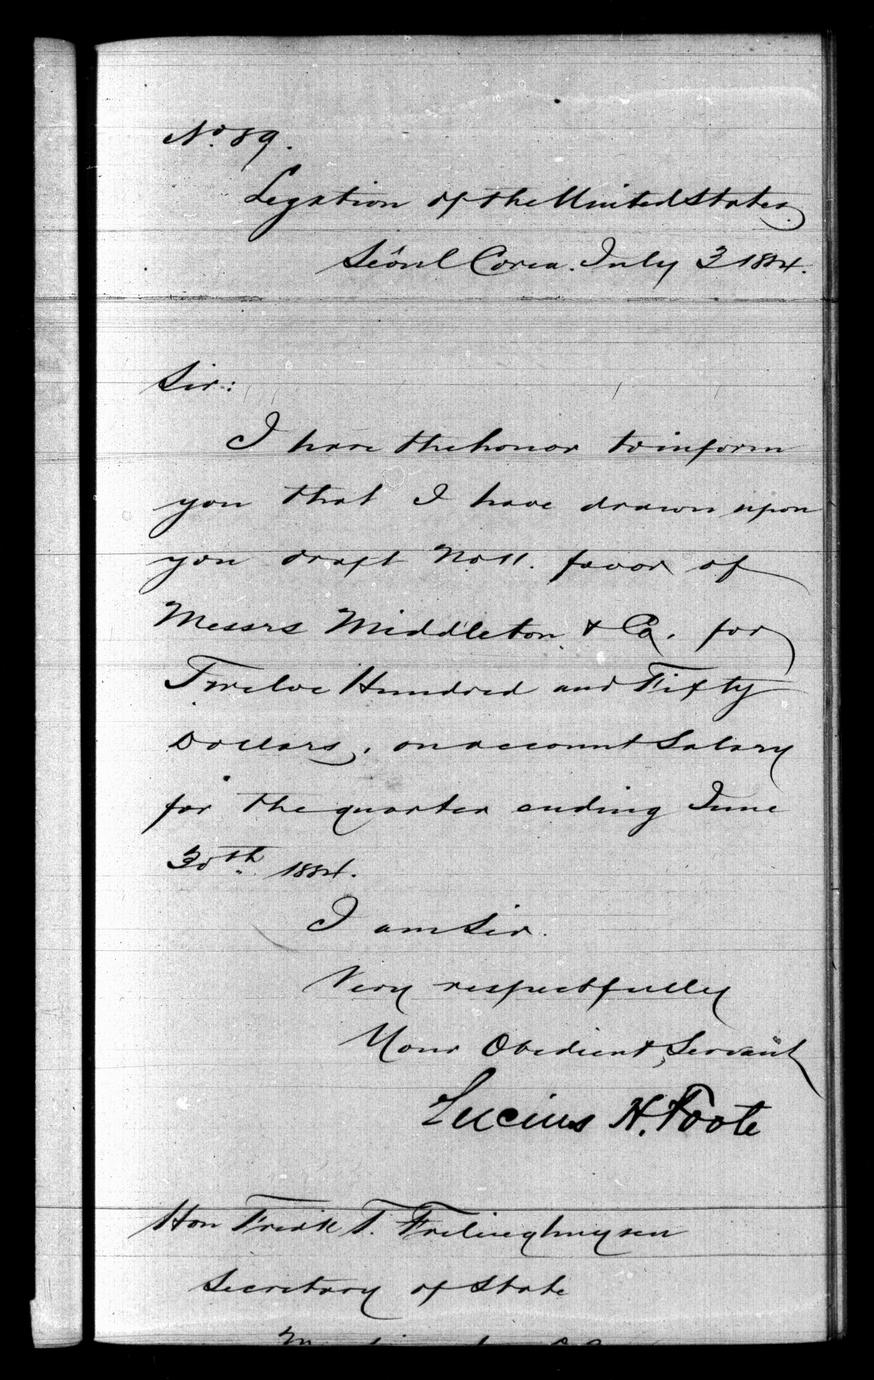 No. 89.
Legation of the United States.
Seoul Corea. July 3 1884.
Sir:
I have the honor to inform
you that I have drawn upon
you draft No 11. favor of
Messrs Middleton & Co. for
Twelve Hundred and Fifty
Dollars, on account Salary
for the quarter ending June
30th 1884.
I am Sir.
Very respectfully
Your Obedient Servant
Lucius H. Foote
Hon Fredk T. Frelinghuysen
Secretary of State